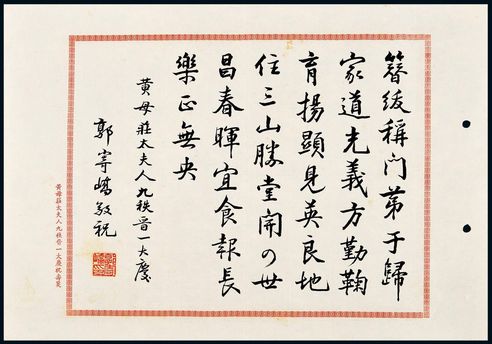 簪紱稱門第于歸
家道光義方勤鞠
育揚顯見英良地
住三山勝堂開四世
昌春暉宜食報長
樂正無央
黃母莊太夫人九秩晉一大慶
郭寄嶠敬祝
黃母莊太夫人九秩晉一大慶祝壽箋